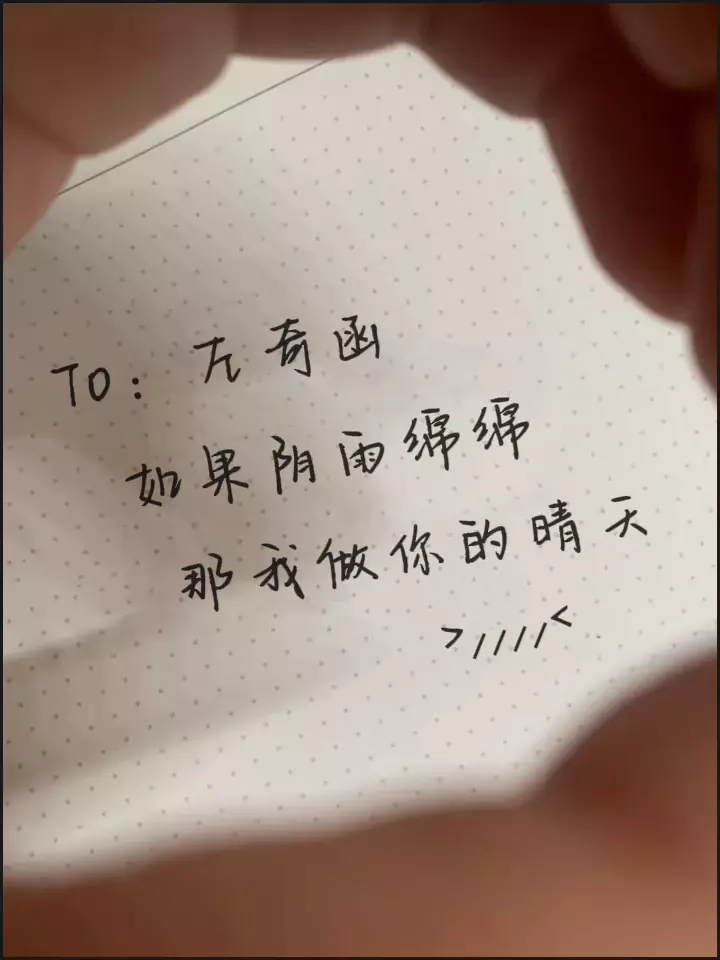 TO: 左奇函
如果阴雨绵绵
那我做你的晴天
>////<